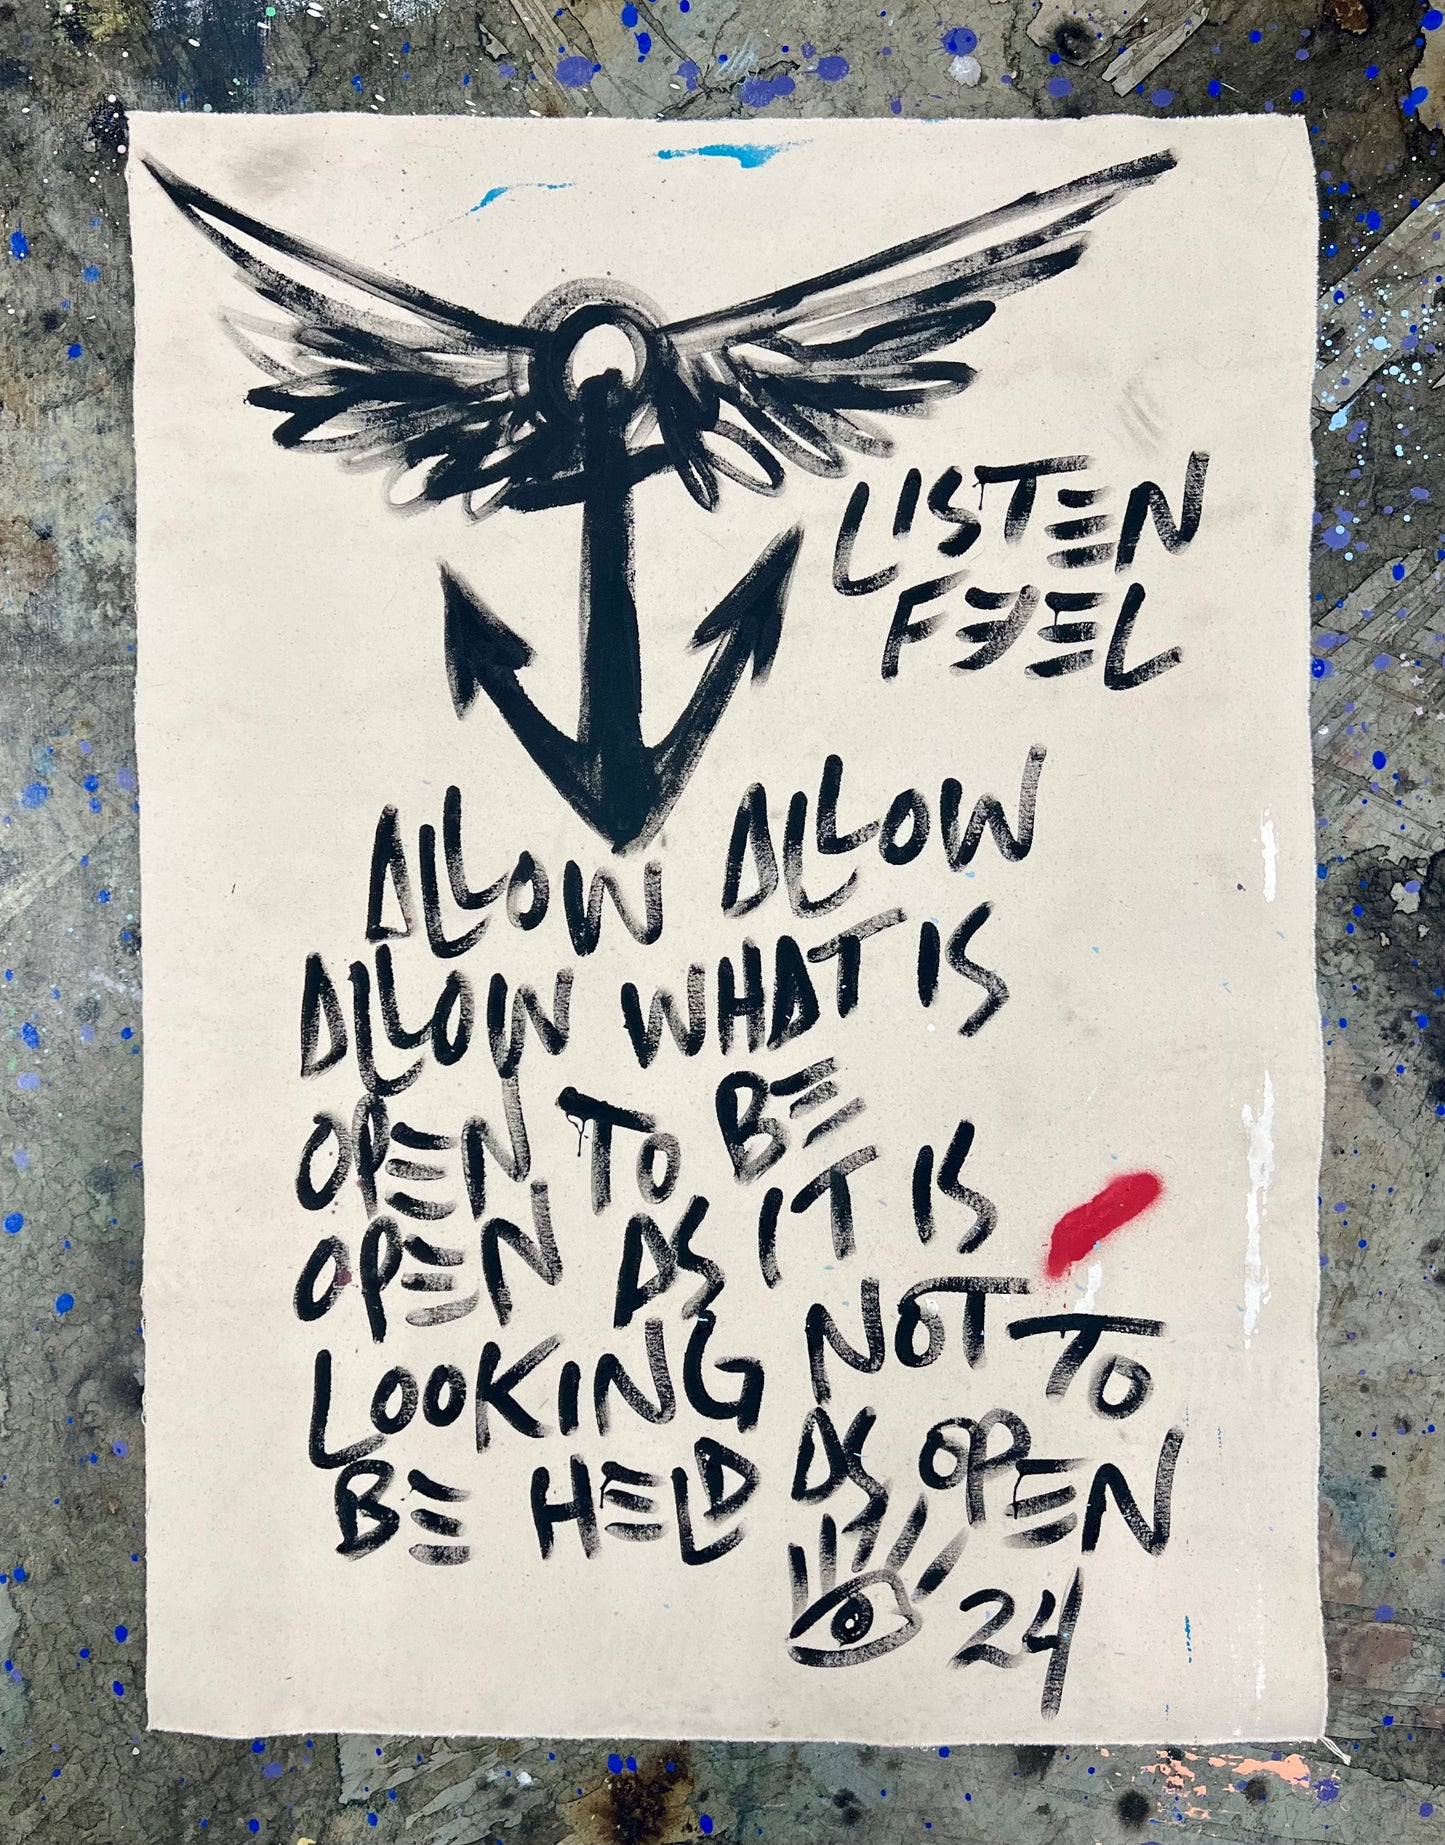 LISTEN
FEEL
ALLOW ALLOW
ALLOW WHAT IS
OPEN TO BE
OPEN AS IT IS
LOOKING NOT TO
BE HELD AS OPEN
24